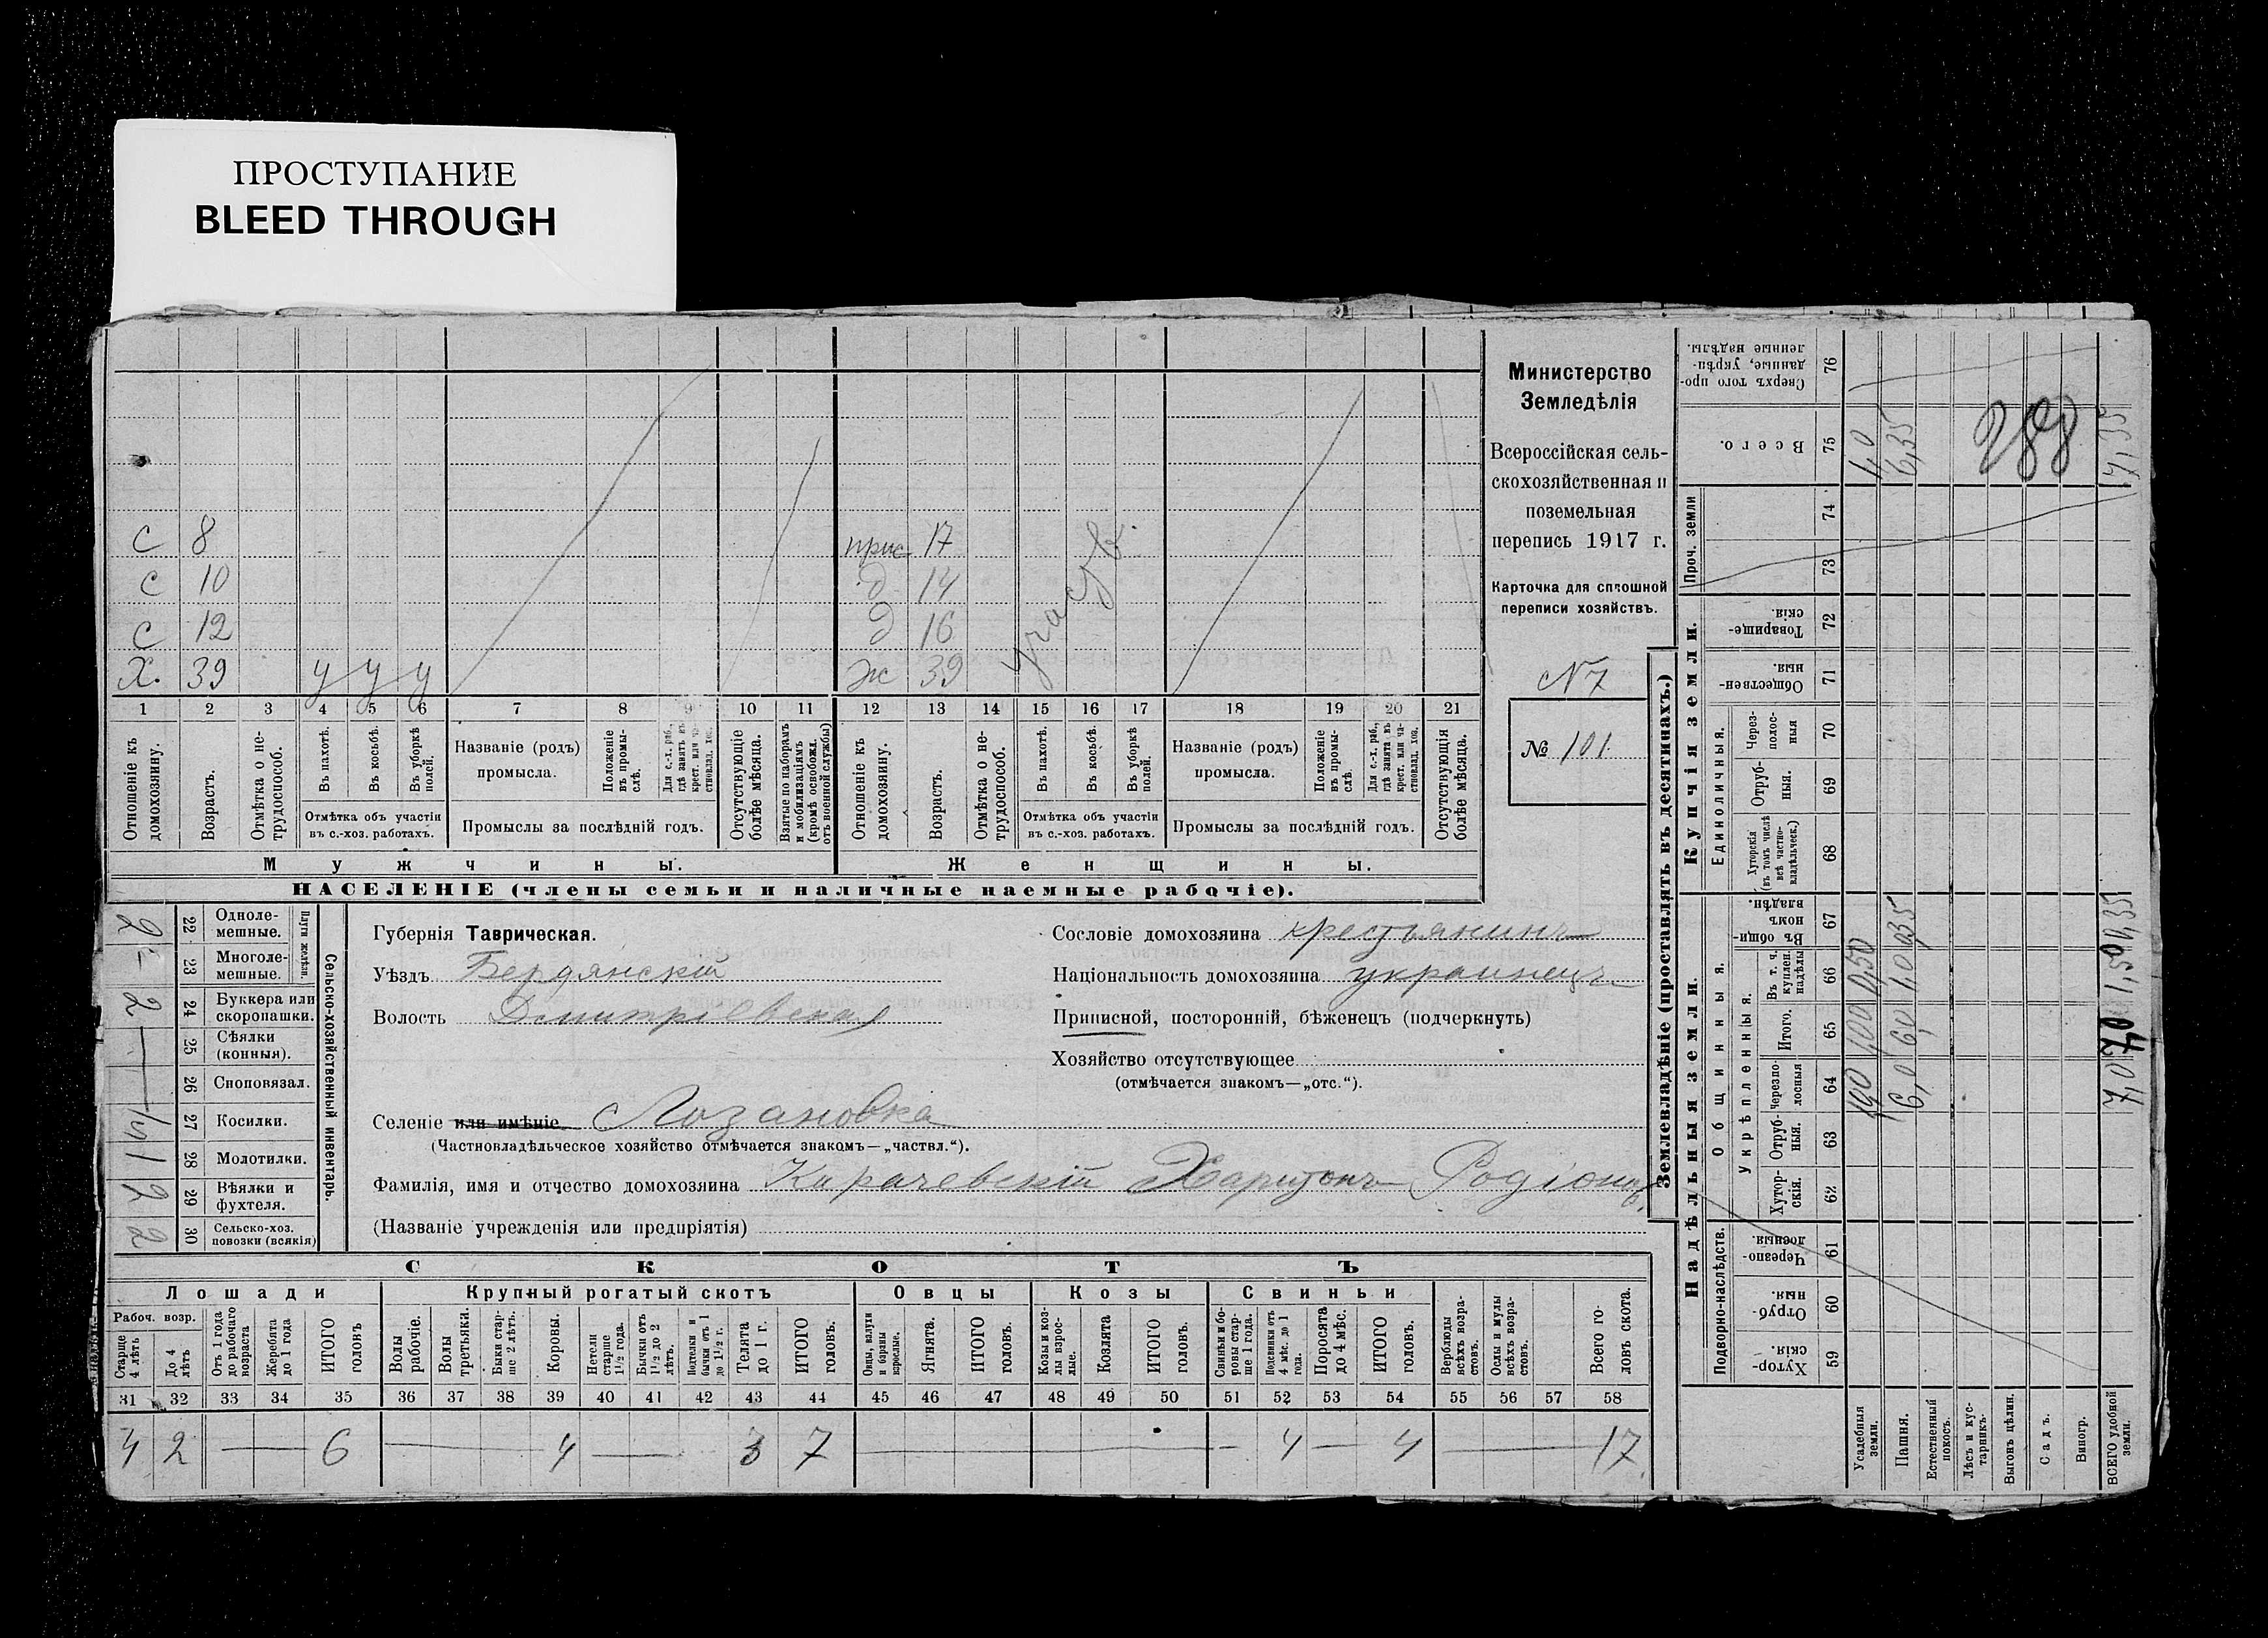 ПРОСТУПАНИЕ
BLEED THROUGH
С 8
С 10
С 12
Х. 39 у у у
прис 17
д 14
д 16
ж 39
участв.
1 2 3 4 5 6 7 8 9 10 11 12 13 14 15 16 17 18 19 20 21
Отношеніе къ домохозяину.
Возрастъ.
Отмѣтка о нетрудоспособ.
Въ пахотѣ.
Въ косьбѣ.
Въ уборкѣ полей.
Отмѣтка объ участіи
въ с.-хоз. работахъ.
Названіе (родъ)
промысла.
Положеніе въ промыслѣ.
Для с.-х. раб., гдѣ занятъ въ крест. или частновлад. хоз.
Промыслы за послѣдній годъ.
Отсутствующіе болѣе мѣсяца.
Взятые по наборамъ и мобилизаціямъ (кромѣ освобожд. отъ военной службы)
Отношеніе къ домохозяину.
Возрастъ.
Отмѣтка о нетрудоспособ.
Въ пахотѣ.
Въ косьбѣ.
Въ уборкѣ полей.
Отмѣтка объ участіи
въ с.-хоз. работахъ.
Названіе (родъ)
промысла.
Положеніе въ промыслѣ.
Для с.-х. раб., гдѣ занята въ крест. или частновлад. хоз.
Промыслы за послѣдній годъ.
Отсутствующія болѣе мѣсяца.
Мужчины. Женщины.
НАСЕЛЕНІЕ (члены семьи и наличные наемные рабочіе).
Министерство
Земледѣлія
Всероссійская сель-
скохозяйственная и
поземельная
перепись 1917 г.
Карточка для сплошной
переписи хозяйствъ.
N 7
№ 101.
Сельско-хозяйственный инвентарь.
Плуги желѣзн.
22 Одноле-
мешные.
23 Многоле-
мешные.
2 24 Буккера или
скоропашки.
25 Сѣялки
(конныя).
26 Сноповязал.
27 Косилки.
28 Молотилки.
29 Вѣялки и
фухтеля.
2 30 Сельско-хоз.
повозки (всякія)
Губернія Таврическая.
Уѣздъ Бердянскій
Волость Дмитріевская
Селеніе или имѣніе Лозановка
(Частновладѣльческое хозяйство отмѣчается знакомъ—„частвл.“).
Фамилія, имя и отчество домохозяина Карачевскій Харитонъ Родіонов.
(Названіе учрежденія или предпріятія)
Сословіе домохозяина крестьянинъ
Національность домохозяина украинецъ
Приписной, посторонній, бѣженецъ (подчеркнуть)
Хозяйство отсутствующее
(отмѣчается знакомъ—„отс.“).
СКОТЪ
Лошади Крупный рогатый скотъ Овцы Козы Свиньи
Рабоч. возр.
Старше 4 лѣтъ
До 4 лѣтъ
Отъ 1 года до рабочаго возраста
Жеребята до 1 года
ИТОГО головъ
Волы рабочіе.
Волы третьяки.
Быки старше 2 лѣтъ.
Коровы.
Нетели старше 1½ года.
Бычки отъ 1½ до 2 лѣтъ.
Подтелки и бычки отъ 1 до 1½ г.
Телята до 1 г.
ИТОГО головъ.
Овцы, валухи и бараны взрослые.
Ягнята.
ИТОГО головъ.
Козы и козлы взрослые.
Козлята
ИТОГО головъ.
Свиньи и боровы старше 1 года.
Подсвинки отъ 4 мѣс. до 1 года.
Поросята до 4 мѣс.
ИТОГО головъ.
Верблюды всѣхъ возрастовъ.
Ослы и мулы всѣхъ возрастовъ.
Всего головъ скота.
31 32 33 34 35 36 37 38 39 40 41 42 43 44 45 46 47 48 49 50 51 52 53 54 55 56 57 58
4 2 — 6 — 4 — 3 7 — 4 — 4 — 17
Землевладѣніе (проставлять въ десятинахъ.)
Надѣльныя земли. Купчія земли. Проч. земли
Подворно-наслѣдств.
Общинныя.
Укрѣпленныя.
Единоличныя.
59 Хутор-
скія.
60 Отруб-
ныя.
61 Черезпо-
лосныя.
62 Хутор-
скія.
63 Отруб-
ныя.
64 Черезпо-
лосныя
65 Итого.
66 Въ т. ч. куплен. надѣлы
67 Въ общин-
номъ
владѣн.
68 Хуторскія (въ томъ числѣ всѣ частновладѣльческ.)
69 Отруб-
ныя.
70 Через-
полос-
ныя
71 Обществен-
ныя.
72 Товарище-
скія.
73
74
75 Всего.
76 Сверхъ того про-
данные, укрѣп-
ленные надѣлы.
Усадебныя земли.
Пашня.
6,0 6,0 1,0 0,35 6,35
Естественный покосъ.
Лѣсъ и кустарникъ.
Выгонъ цѣлин.
Садъ.
Виногр.
ВСЕГО удобной земли.
7,0 1,50 0,35
288